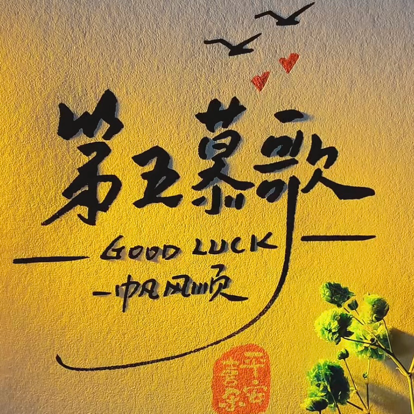 第五慕歌
GOOD LUCK
一帆风顺
平安
喜乐